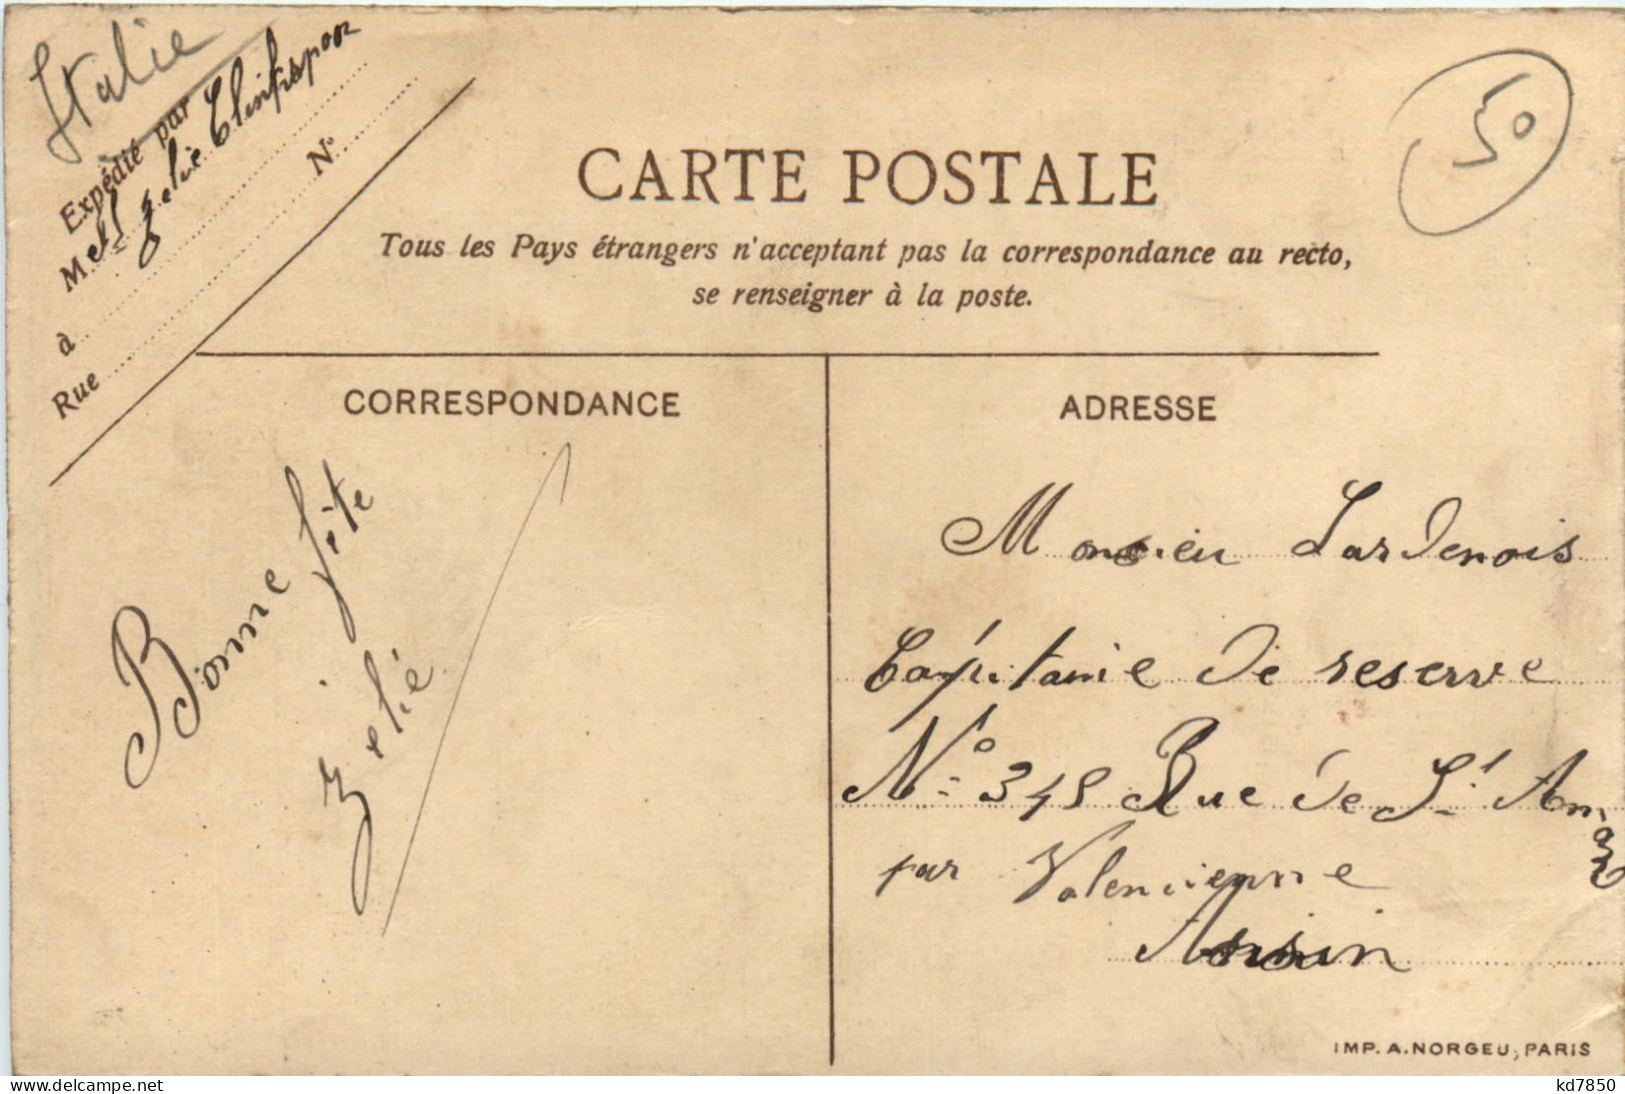 Italie
50
Expédié par
Melle Zelie
à
Rue
N°
CARTE POSTALE
Tous les Pays étrangers n'acceptant pas la correspondance au recto,
se renseigner à la poste.
CORRESPONDANCE
Bonne fête
Zelié
ADRESSE
Monsieu Lardenois
Capitanie de reserve
N° 348 Rue de St Am
par Valencienne
Ansin
IMP. A. NORGEU, PARIS
kd7850
www.delcampe.net